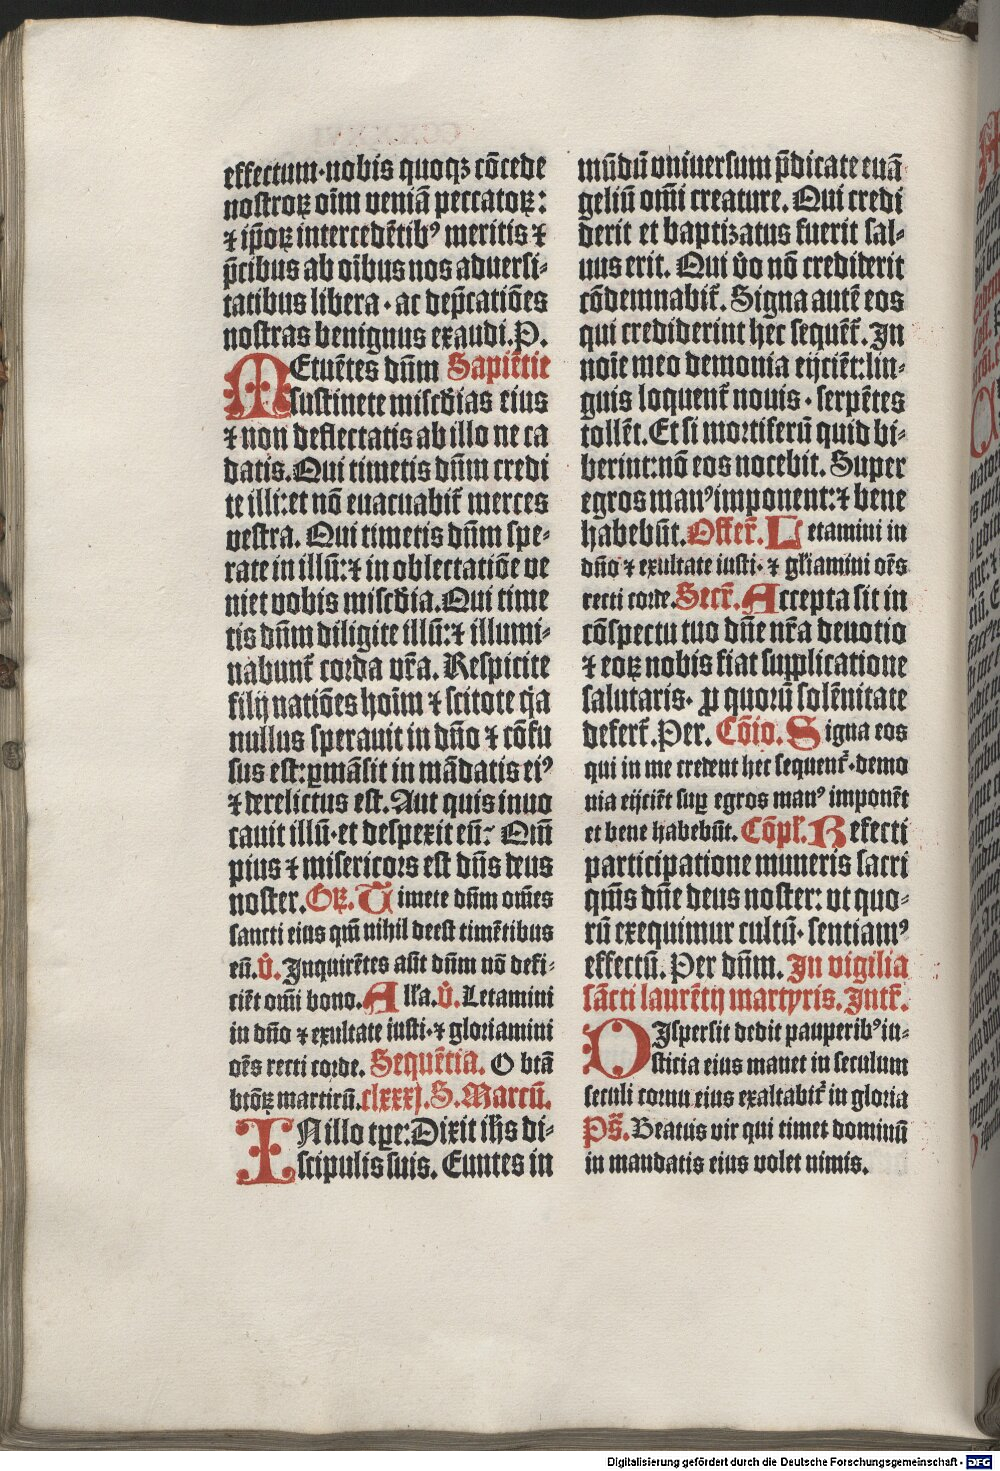 effectum·nobis quoqꝫ cōcede
nostroꝝ oīm veniā peccatoꝝ:
⁊ ip̄oꝝ intercedētibꝰ meritis ⁊
p̄cibus ab oībus nos aduersi⸗
tatibus libera · ac dep̄catiōes
nostras benignus exaudi.P.
MEtuētes dn̄m Sapiētie
sustinete misc̄dias eius
⁊ non deflectatis ab illo ne ca
datis.Qui timetis dn̄m credi
te illi:et nō euacuabit᷑ merces
vestra. Qui timetis dn̄m spe⸗
rate in illū:⁊ in oblectatiōe ve
niet vobis misc̄dia.Qui time
tis dn̄m diligite illū:⁊ illumi⸗
nabunt᷑ corda vr̄a. Respicite
filij natiōes hoīm ⁊ scitote q̄a
nullus sperauit in dn̄o ⁊ cōfu
sus est:ꝑmāsit in mādatis eiꝰ
⁊ derelictus est.Aut quis inuo
cauit illū·et despexit eū? Qm̄
pius ⁊ misericors est dn̄s deus
noster.Gꝝ. Timete dn̄m om̄es
sancti eius qm̄ nihil deest timētibus
eū.v̄. Inquirētes aūt dn̄m nō defi⸗
ciēt om̄i bono. All'a.v̄. Letamini
in dn̄o ⁊ exultate iusti·⁊ gloriamini
oēs recti corde. Sequētia. O btā
btōꝝ martirū.clxxxj.S.Marcū.
IN illo tꝑe:Dixit ih̄s di⸗
scipulis suis. Euntes in
mūdū vniuersum p̄dicate euā
geliū om̄i creature. Qui credi
derit et baptizatus fuerit sal⸗
uus erit. Qui v̄o nō crediderit
cōdemnabit᷑. Signa autē eos
qui crediderint hec sequēt᷑. In
noīe meo demonia eijciēt:lin⸗
guis loquent᷑ nouis · serpētes
tollēt.Et si mortiferū quid bi⸗
berint:nō eos nocebit. Super
egros manꝰ imponent:⁊ bene
habebūt.Offer̄. Letamini in
dn̄o ⁊ exultate iusti· ⁊ gl'iamini oēs
recti corde.Secr̄. Accepta sit in
cōspectu tuo dn̄e nr̄a deuotio
⁊ eoꝝ nobis fiat supplicatione
salutaris· ꝓ quorū solēnitate
defert᷑.Per. Cōio. Signa eos
qui in me credent hec sequent᷑·demo
nia eijciēt suꝑ egros manꝰ imponēt
et bene habebūt. Cōpl'. Refecti
participatione muneris sacri
qm̄s dn̄e deus noster: vt quo⸗
rū exequimur cultū· sentiamꝰ
effectū. Per dn̄m. In vigilia
sācti laurētij martyris. Intr̄.
DIspersit dedit pauperibꝰ iu⸗
sticia eius manet in seculum
seculi cornu eius exaltabit᷑ in gloria
Ps̄. Beatus vir qui timet dominū
in mandatis eius volet nimis.
Digitalisierung gefördert durch die Deutsche Forschungsgemeinschaft - DFG